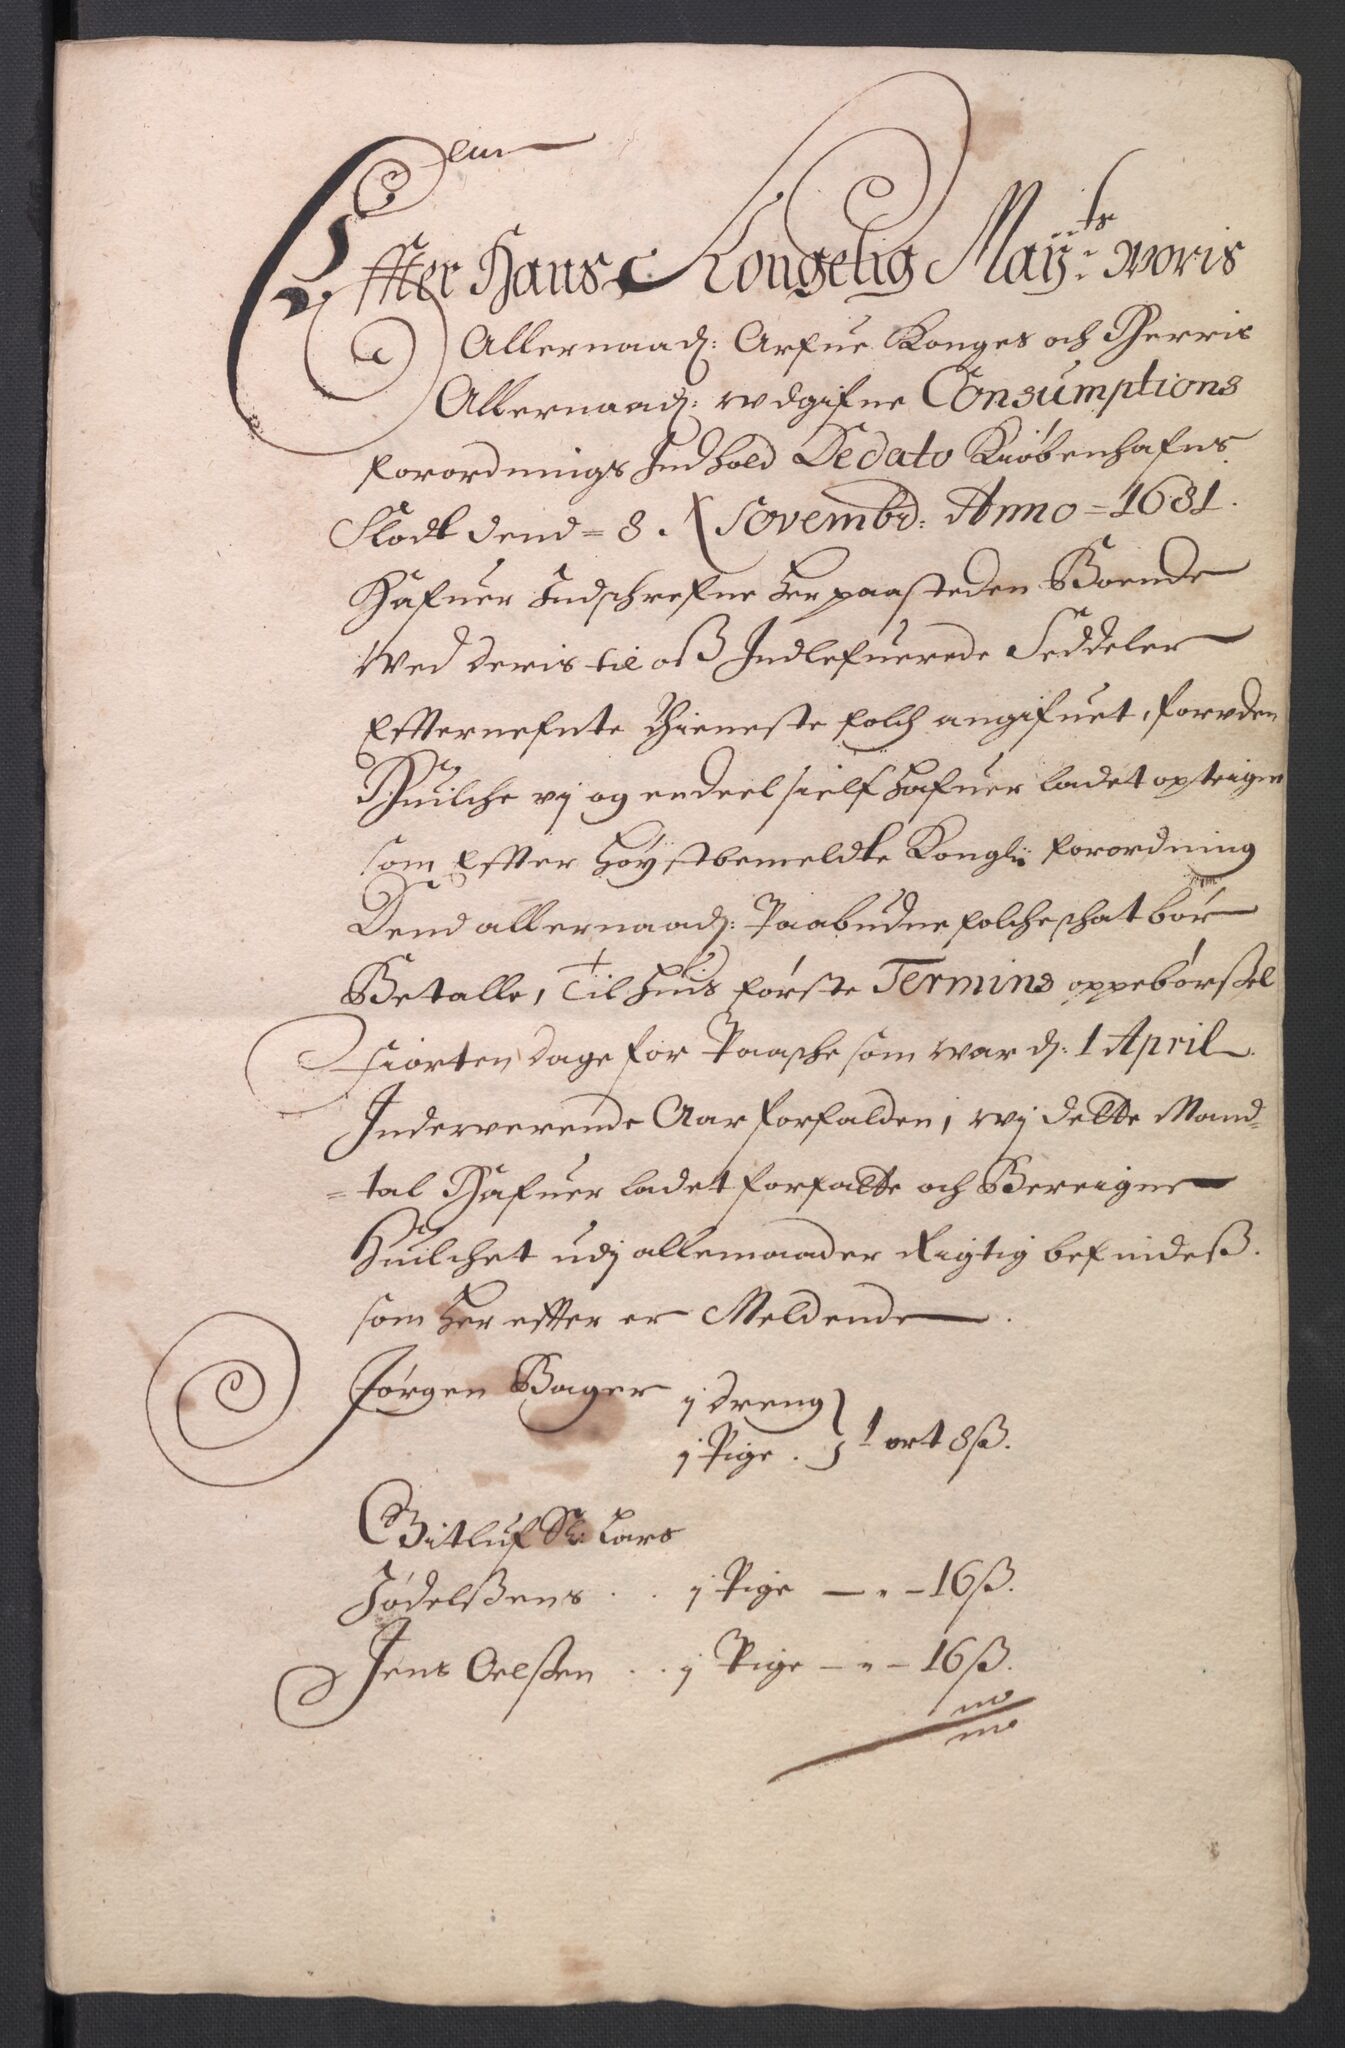 Effter Hans Kongelig Mayts: Woris
Allernaad: Arfue Konges och Herris
Allernaad: wdgifne Consumptions
forordnings Indhold Dedato Kiøbenhafns
Slodt dend = 8. Novembr: Anno = 1681.
Hafuer Indschrefne her paasteden Boende
Wed deris til oß Indlefuerede Seddeler
Effternefnte Thieneste folch angifuet, forvden
Huilche vj og endeel sielf hafuer ladet opteigne
som Effter høystbemeldte Kongl: forordning
Dend allernaad: Paabudne folcheschat bør
Betalle, Til huis første Termins oppebørßel
fiorten dage for Paasche som war d: 1 April
Inderverende Aar forfalden, wj dette Mand=
=tal Hafuer ladet forfatte och Bereigne
Huilchet udj allemaader Rigtig befindeß.
som her effter er Meldende.
Jørgen Bager j dreng
j Pige. 1 ort 8ß.
Gitluf Sl: Lars
Jødelßens .. j Pige — " — 16ß.
Jens Oelßen .. j Pige — " — 16ß.